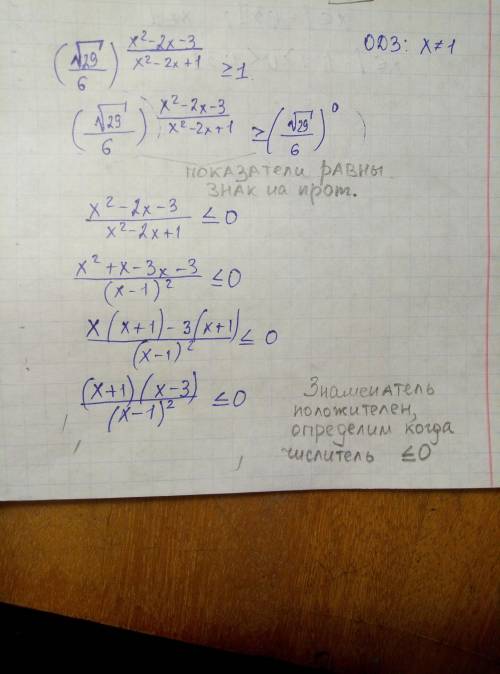 (√29/6)^((x²-2x-3)/(x²-2x+1)) ≥ 1 ОДЗ: x≠1
(√29/6)^((x²-2x-3)/(x²-2x+1)) ≥ (√29/6)^0
показатели равны
знак на прот.
(x²-2x-3)/(x²-2x+1) ≤ 0
(x²+x-3x-3)/(x-1)² ≤ 0
(x(x+1)-3(x+1))/(x-1)² ≤ 0
((x+1)(x-3))/(x-1)² ≤ 0
Знаменатель
положителен,
определим когда
числитель ≤0